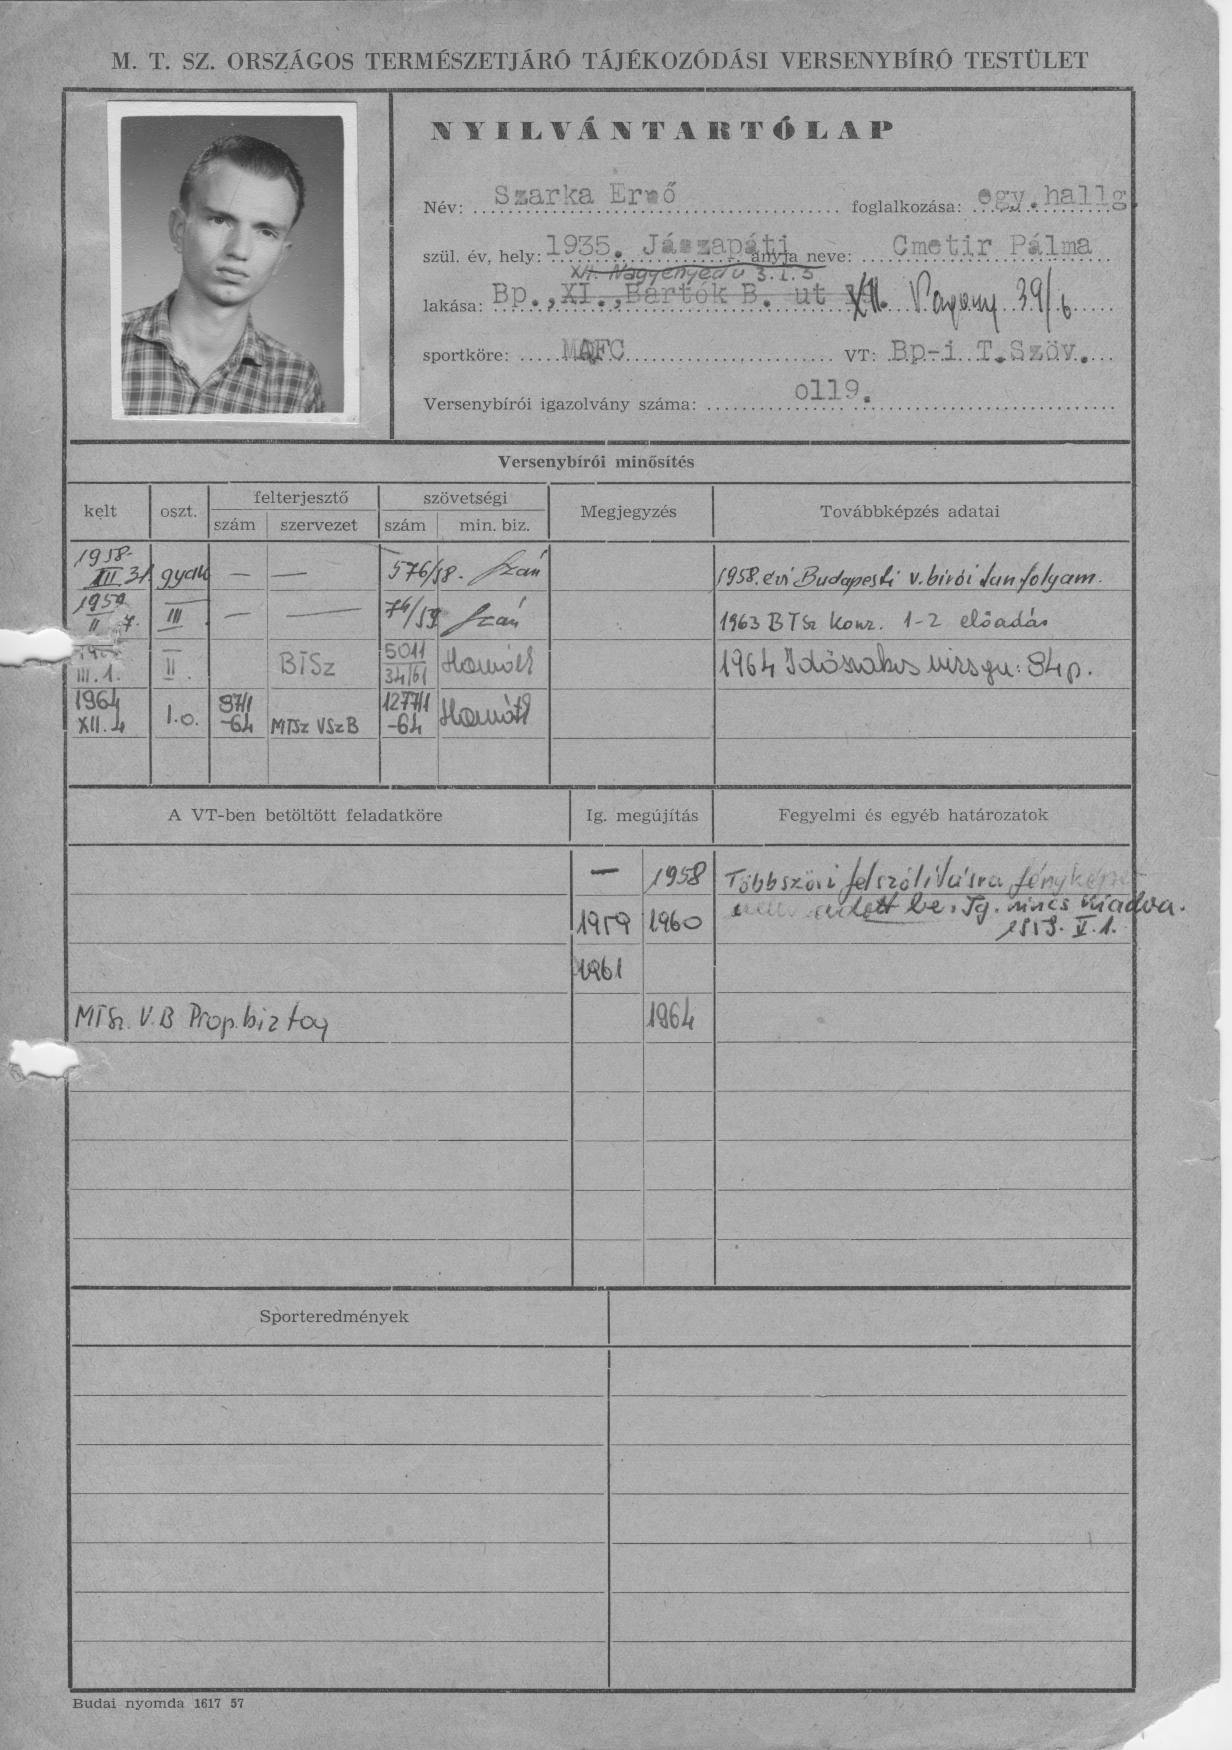 M. T. SZ. ORSZÁGOS TERMÉSZETJÁRÓ TÁJÉKOZÓDÁSI VERSENYBÍRÓ TESTÜLET
NYILVÁNTARTÓLAP
Név: Szarka Ernő foglalkozása: egy.hallg.
szül. év, hely: 1935. Jászapáti anyja neve: Cmetir Pálma
XII. Nagyenyed u 3.I.3
lakása: Bp.,XI.,Bartók B. ut XII. 39/b
sportköre: MAFC VT: Bp-i T.Szöv.
Versenybírói igazolvány száma: o119.
Versenybírói minősítés
kelt oszt. felterjesztő szövetségi Megjegyzés Továbbképzés adatai
szám szervezet szám min. biz.
1958. III. 31. gyak — — 576/58. 1958. évi Budapesti v.birói tanfolyam.
1959 II 7. III — — 76/59 1963 BTSz konz. 1-2 előadás
III. 1. II. BTSz 5011 34/61 1964 Időszakos vizsga: 84p.
1964 XII. 4 I.o. 97/1 -64 MTSz VSzB 1277/1 -64
A VT-ben betöltött feladatköre Ig. megújítás Fegyelmi és egyéb határozatok
— 1958 Többszöri felszólitásra fényképet
1959 1960 nem adott be. Ig. nincs kiadva.
1959. V. 1.
1961
MTSz. V.B Prop.biz tag 1964
Sporteredmények
Budai nyomda 1617 57